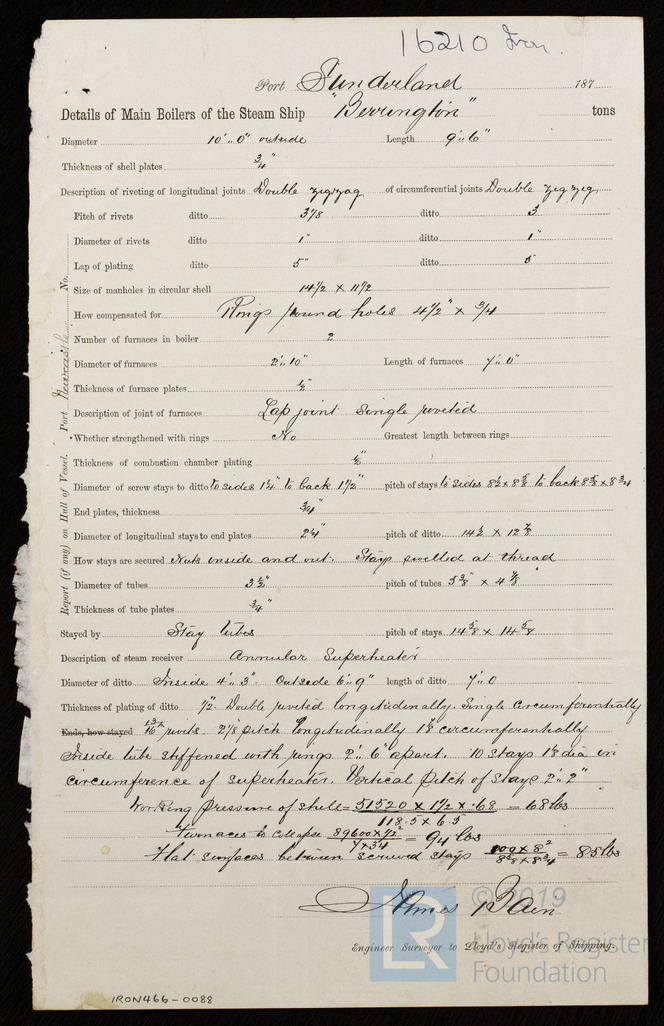 16210 Iron.
Port Sunderland 187
Details of Main Boilers of the Steam Ship "Berrington" tons
Diameter 10'..0" outside Length 9'..6"
Thickness of shell plates 3/4"
Description of riveting of longitudinal joints Double zigzag of circumferential joints Double zigzig
Pitch of rivets ditto 3 1/8 ditto 3
Diameter of rivets ditto 1" ditto 1"
Lap of plating ditto 5" ditto 5
Size of manholes in circular shell 14 1/2 x 11 1/2
How compensated for Rings round holes 4 1/2" x 3/4
Number of furnaces in boiler 2
Diameter of furnaces 2'..10" Length of furnaces 7'..0"
Thickness of furnace plates 1/2"
Description of joint of furnaces Lap joint single riveted
Whether strengthened with rings No Greatest length between rings
Thickness of combustion chamber plating 1/2"
Diameter of screw stays to ditto to sides 1 1/4" to back 1 1/2" pitch of stays to sides 8 1/2 x 8 5/8 to back 8 5/8 x 8 3/4
End plates, thickness 3/4"
Diameter of longitudinal stays to end plates 2 1/4" pitch of ditto 14 1/2 x 12 7/8
How stays are secured Nuts inside and out. Stays swelled at thread
Diameter of tubes 3 1/2" pitch of tubes 5 3/8" x 4 7/8
Thickness of tube plates 3/4"
Stayed by Stay tubes pitch of stays 14 5/8 x 14 5/8
Description of steam receiver Annular Superheater
Diameter of ditto Inside 4'..3" Outside 6'..9" length of ditto 7'..0
Thickness of plating of ditto 1/2. Double riveted longitudinally. Single circumferentially
Ends, how stayed 13/16" rivits. 2 1/8 pitch longitudinally 1 7/8 circumferentially
Inside tube stiffened with rings 2'..6" apart. 10 stays 1 1/8 dia in
circumference of superheater. Vertical pitch of stays 2'..2"
Working pressure of shell = 51520 x 1 1/2 x .68 / 118.5 x 6.5 = 68 lbs
Furnaces to collapse 89600 x 1/2² / 7 x 34 = 94 lbs
Flat surfaces between screwed stays 100 x 8² / 8 5/8 x 8 3/4 = 85 lbs
James Bain
Engineer Surveyor to Lloyd's Register of Shipping.
Report (if any) on Hull of Vessel. Port Newcastle No.
IRON466-0088
© 2019
LR
Lloyd's Register
Foundation